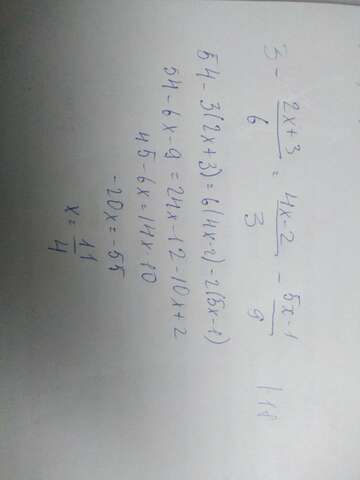 3 - \frac{2x+3}{6} = \frac{4x-2}{3} - \frac{5x-1}{9} |·18
54 - 3(2x+3) = 6(4x-2) - 2(5x-1)
54 - 6x - 9 = 24x - 12 - 10x + 2
45 - 6x = 14x - 10
-20x = -55
x = \frac{11}{4}